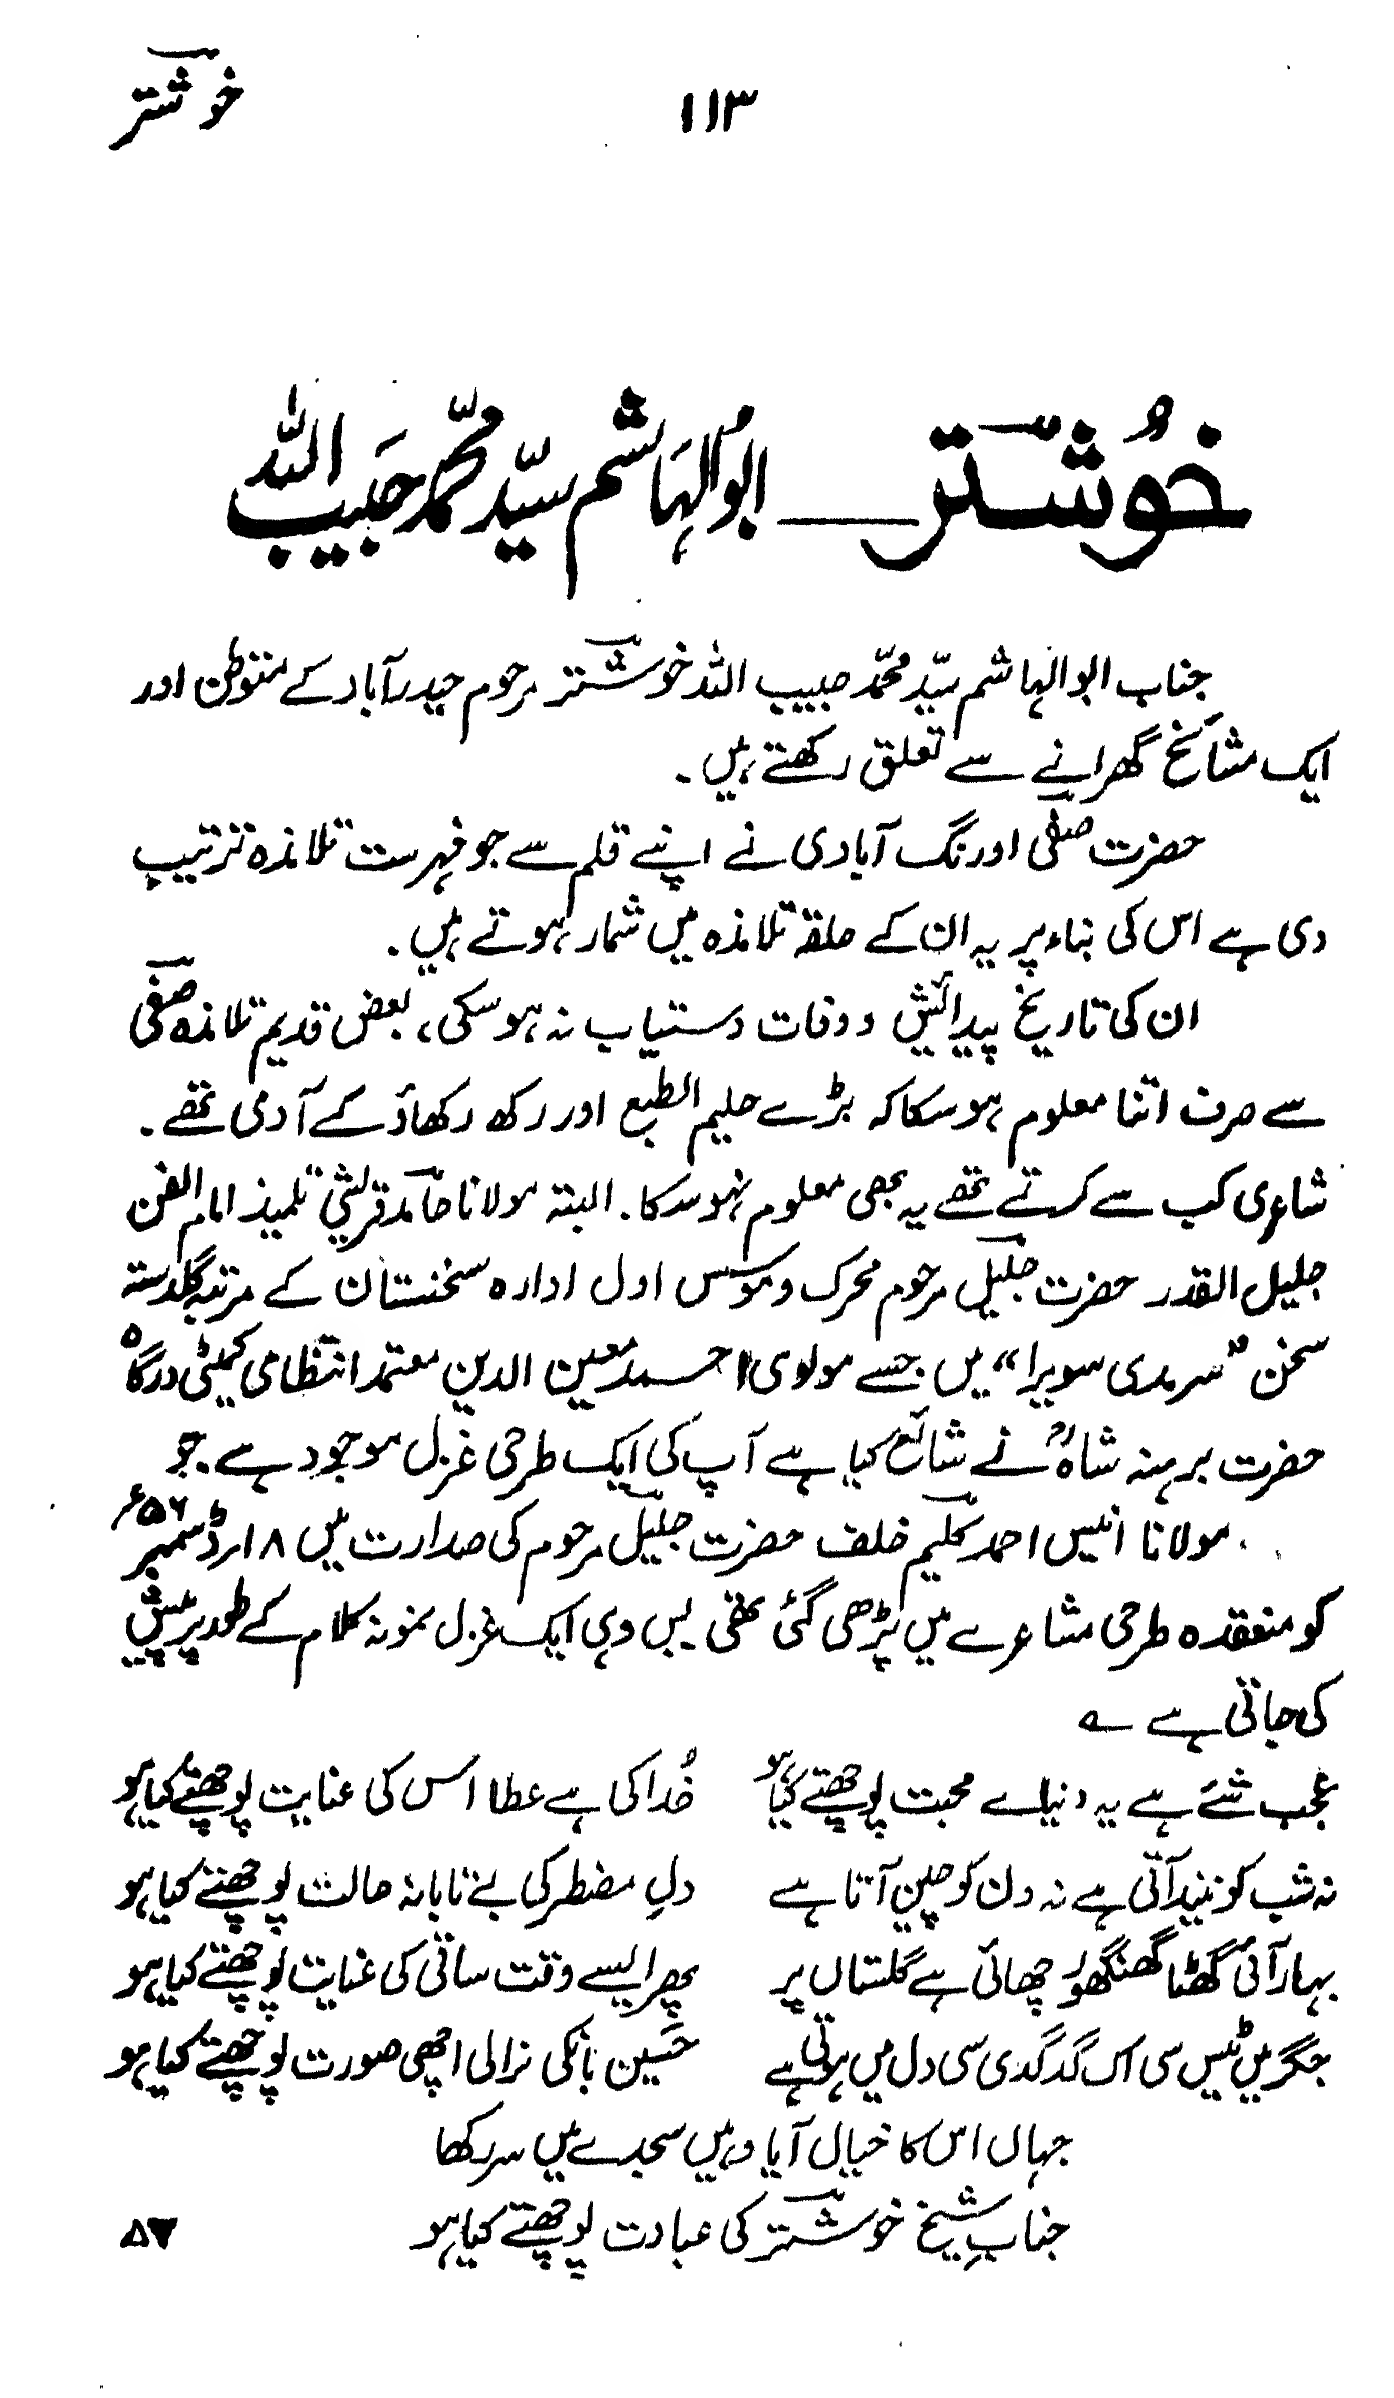 خوشتر
۱۱۳
خُوشتر ـــ ابوالہاشم سیّد محمّد حبیب اللہ
جناب ابوالہاشم سیّد محمّد حبیب اللہ خوشتر مرحوم حیدرآباد کے متوطن اور
ایک مشائخ گھرانے سے تعلق رکھتے ہیں ۔
حضرت صفی اورنگ آبادی نے اپنے قلم سے جو فہرست تلامذہ ترتیب
دی ہے اس کی بناء پر یہ ان کے حلقہ تلامذہ میں شمار ہوتے ہیں ۔
ان کی تاریخ پیدائش و وفات دستیاب نہ ہوسکی ، بعض قدیم تلامذہ صفی
سے صرف اتنا معلوم ہوسکا کہ بڑے حلیم الطبع اور رکھ رکھاؤ کے آدمی تھے ۔
شاعری کب سے کرتے تھے یہ بھی معلوم نہوسکا ۔ البتہ مولانا حامد قریشی تلمیذ امام الفن
جلیل القدر حضرت جلیل مرحوم محرک و موسس اول ادارہ سخنستان کے مرتبہ گلدستہ
سخن ”سرمدی سویرا“ میں جسے مولوی احمد معین الدین معتمد انتظامی کمیٹی درگاہ
حضرت برہنہ شاہؒ نے شائع کیا ہے آپ کی ایک طرحی غزل موجود ہے ۔ جو
مولانا انیس احمد کلیم خلف حضرت جلیل مرحوم کی صدارت میں ۱۸؍ڈسمبر ۵۶ء
کو منعقدہ طرحی مشاعرے میں پڑھی گئی تھی بس وہی ایک غزل نمونہ کلام کے طور پر پیش
کی جاتی ہے ؎
عجب شئے ہے یہ دنیائے محبت پوچھتے کیا ہو خُدا کی ہے عطا اس کی عنایت پوچھتے کیا ہو
نہ شب کو نیند آتی ہے نہ دن کو چین آتا ہے دلِ مضطر کی بے تابانہ حالت پوچھتے کیا ہو
بہار آئی گھٹا گھنگھور چھائی ہے گلستاں پر پھر ایسے وقت ساقی کی عنایت پوچھتے کیا ہو
جگر میں ٹیس سی اک گدگدی سی دل میں ہوتی ہے حَسین بانکی نرالی اچھی صورت پوچھتے کیا ہو
جہاں اس کا خیال آیا وہیں سجدے میں سر رکھا
جنابِ شیخ خوشتر کی عبادت پوچھتے کیا ہو
۵۷